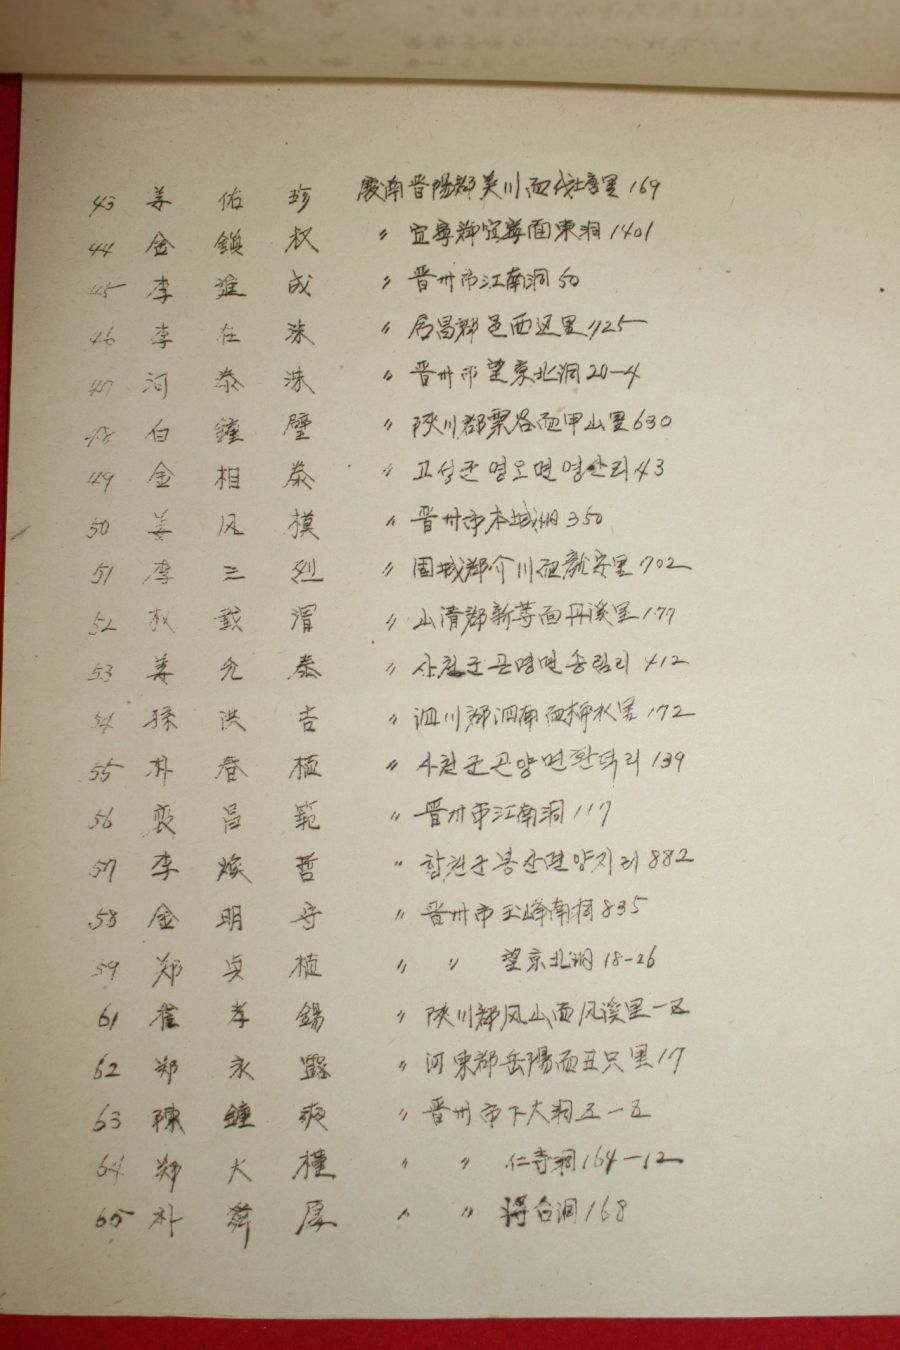 43 姜 佑 珍 慶南晋陽郡美川面 里 169
44 金 鎮 权 〃 宜寧郡宜寧面東洞 1401
45 李 進 成 〃 晋州市江南洞 50
46 李 在 洙 〃 居昌郡邑西辺里 1125
47 河 泰 洙 〃 晋州市望京北洞 20-4
48 白 鍾 璧 〃 陜川郡栗谷面甲山里 630
49 金 相 泰 〃 고성군 영오면 영산리 43
50 姜 风 模 〃 晋州市本城洞 350
51 李 三 烈 〃 固城郡介川面 里 702
52 权 載 渭 〃 山清郡新等面丹溪里 177
53 姜 允 泰 〃 사천군 곤명면 송림리 412
54 孫 洪 吉 〃 泗川郡泗南面 里 172
55 朴 春 植 〃 사천군 곤양면 환덕리 139
56 裵 昌 範 〃 晋州市江南洞 117
57 李 焕 哲 〃 합천군 봉산면 양지리 882
58 金 明 守 〃 晋州市玉峰南洞 835
59 郑 貞 植 〃 〃 望京北洞 18-26
61 崔 孝 錫 〃 陜川郡风山面风溪里 一五
62 郑 永 〃 河東郡岳陽面丑只里 17
63 陳 鍾 爽 〃 晋州市下大洞 五一五
64 郑 大 〃 〃 仁寺洞 164-12
65 朴 舜 厚 〃 〃 将台洞 168